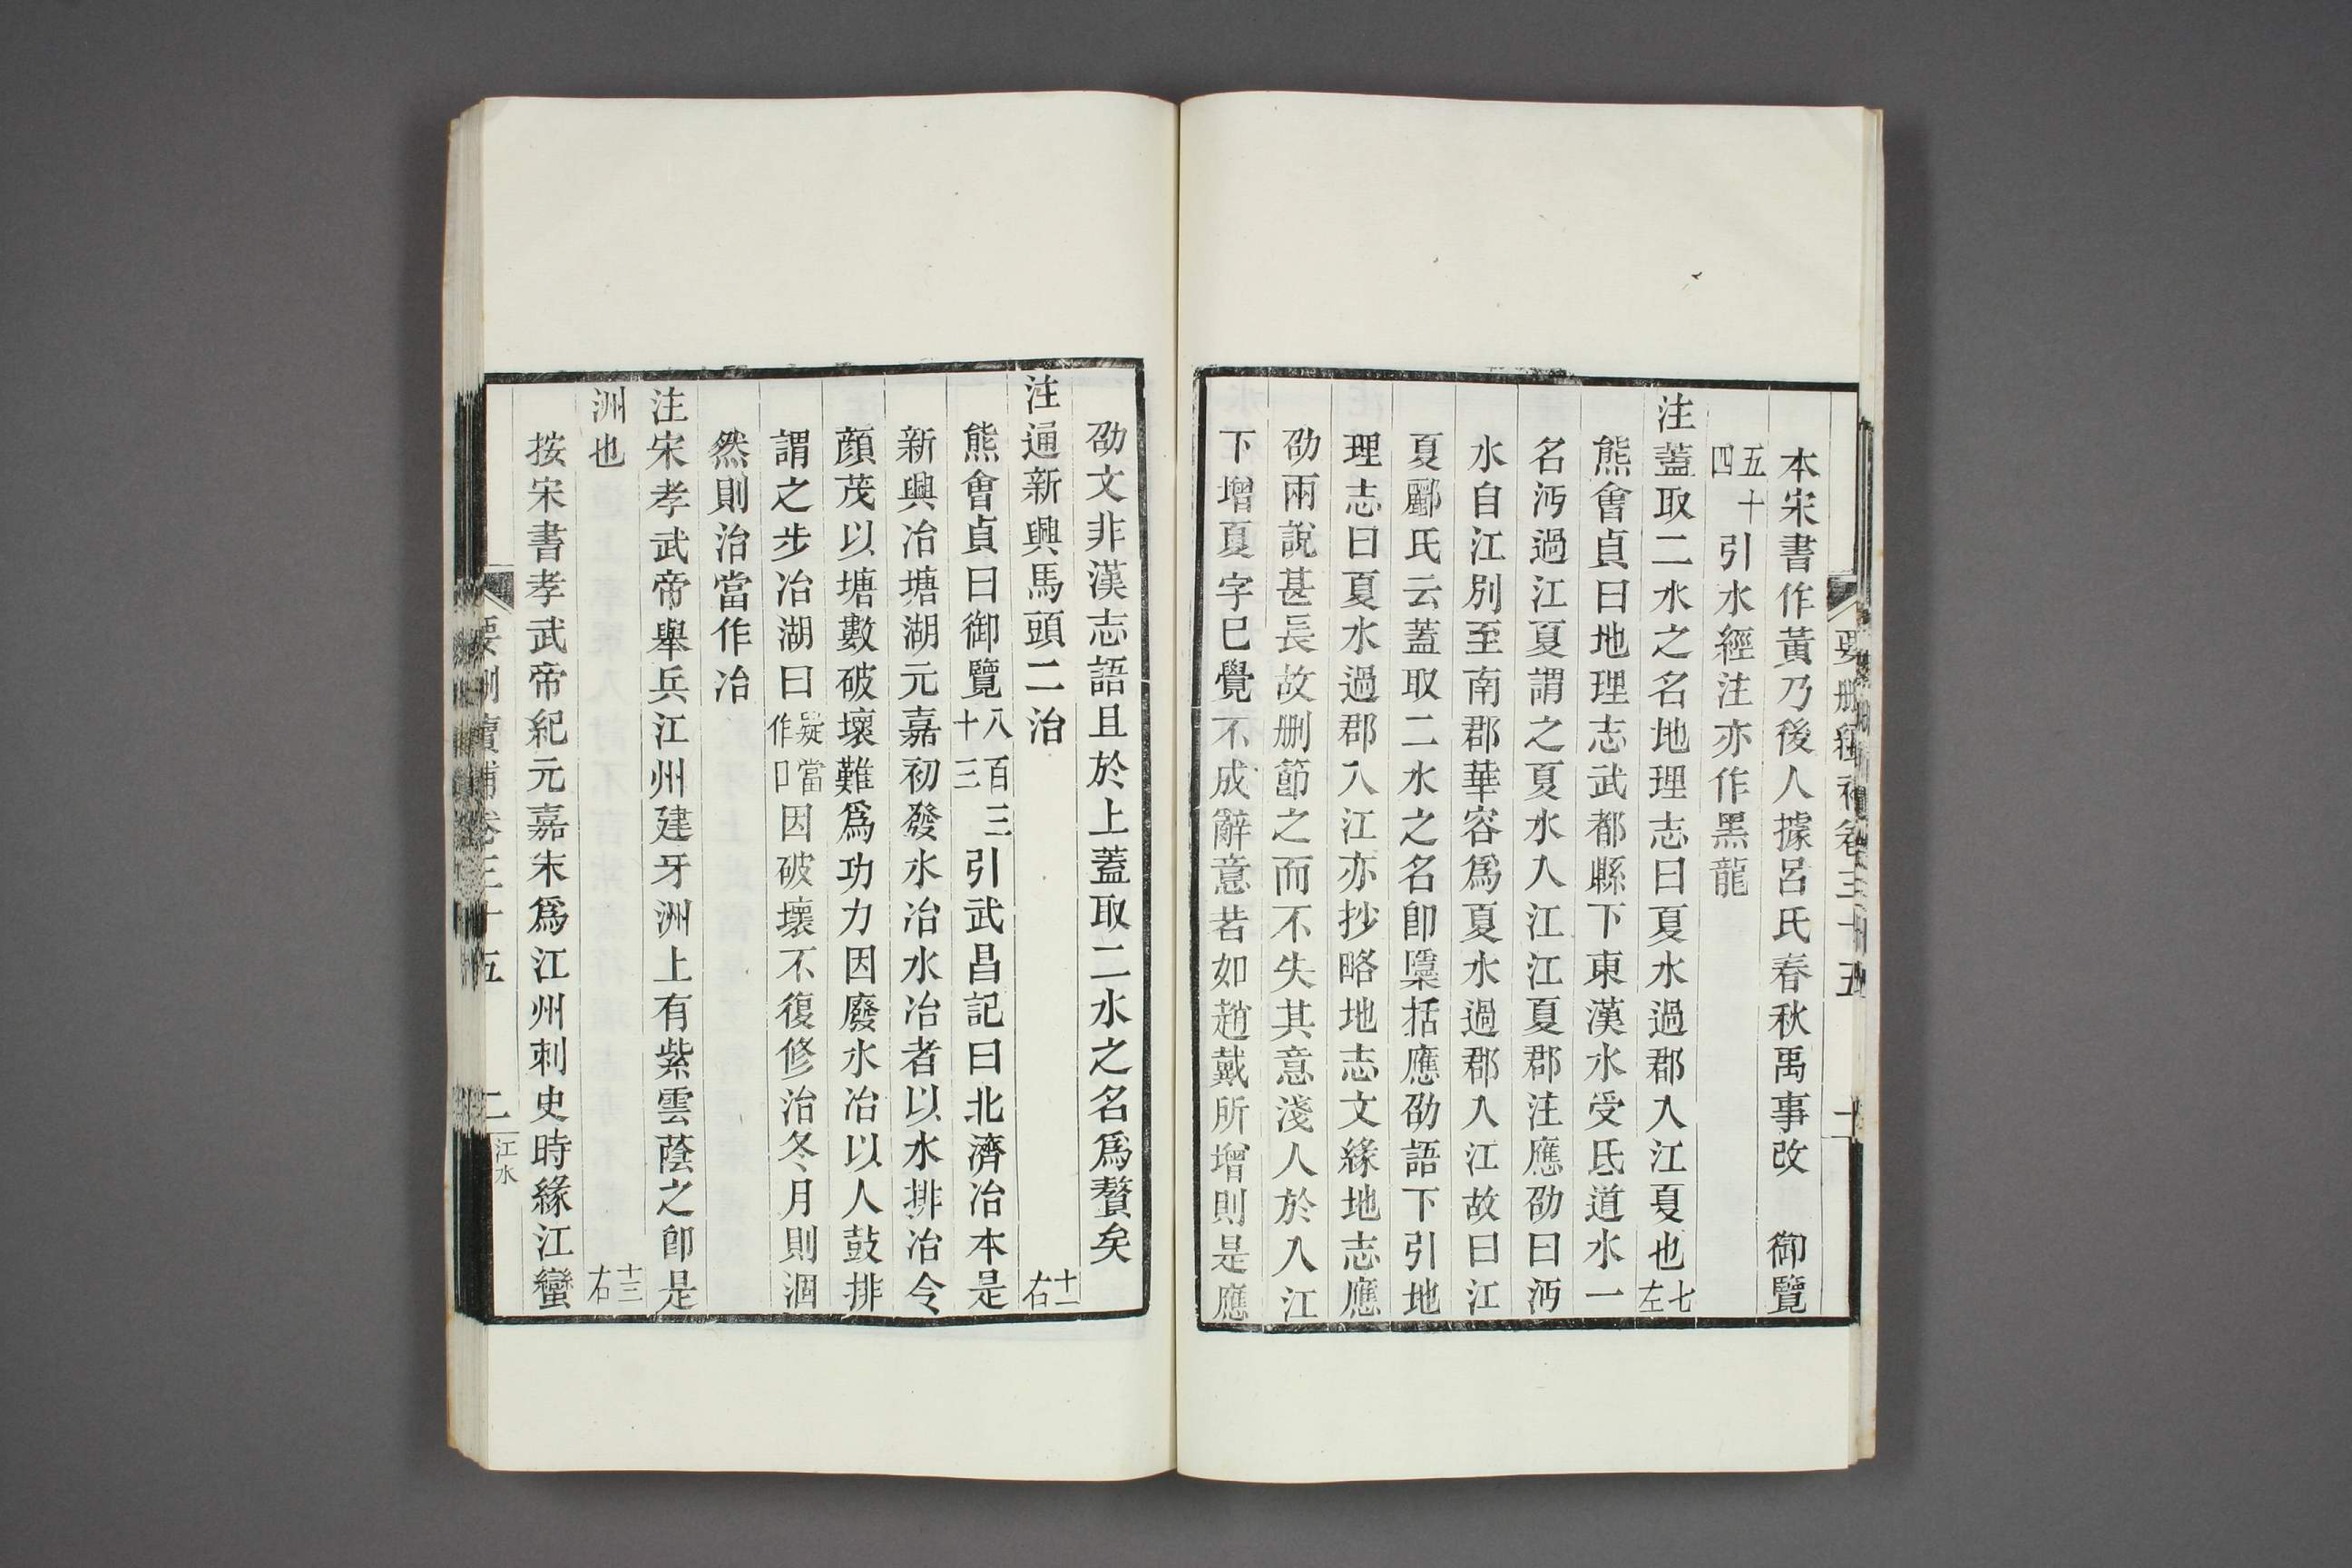 要刪續補卷三十五
本宋書作黃乃後人據呂氏春秋禹事改　御覽
五十四引水經注亦作黑龍
注蓋取二水之名地理志曰夏水過郡入江夏也七左
熊會貞曰地理志武都縣下東漢水受氐道水一
名沔過江夏謂之夏水入江江夏郡注應劭曰沔
水自江別至南郡華容爲夏水過郡入江故曰江
夏酈氏云蓋取二水之名卽檃括應劭語下引地
理志曰夏水過郡入江亦抄略地志文緣地志應
劭兩說甚長故刪節之而不失其意淺人於入江
下增夏字已覺不成辭意若如趙戴所增則是應
劭文非漢志語且於上蓋取二水之名爲贅矣
注通新興馬頭二治十二右
熊會貞曰御覽八百三十三引武昌記曰北濟冶本是
新興冶塘湖元嘉初發水冶水冶者以水排冶令
顏茂以塘數破壞難爲功力因廢水冶以人鼓排
謂之步冶湖曰疑當作口因破壞不復修治冬月則涸
然則治當作冶
注宋孝武帝舉兵江州建牙洲上有紫雲蔭之卽是
洲也十三右
按宋書孝武帝紀元嘉末爲江州刺史時緣江蠻
要刪續補卷三十五　二　江水